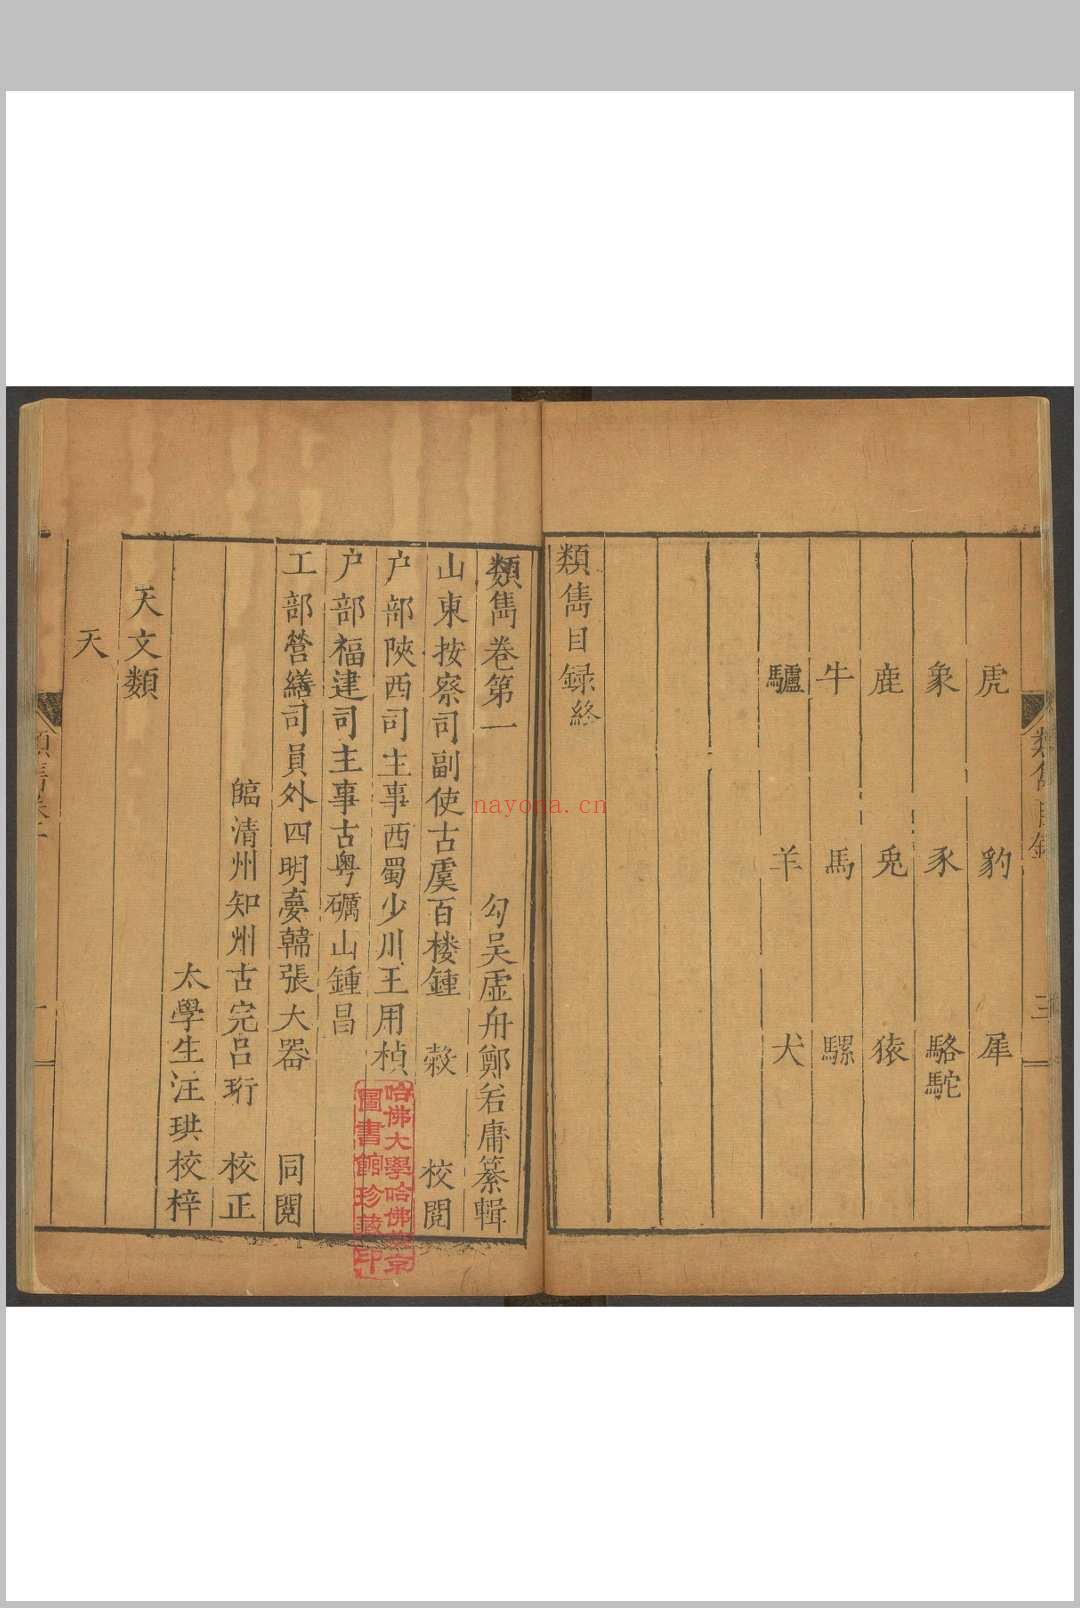 虎　豹　犀
象　豕　駱駝
鹿　兎　猿
牛　馬　騾
驢　羊　犬
類雋目録終
類雋目録
三
類雋卷第一　勾吴虛舟鄭若庸纂輯
山東按察司副使古虞百楼鍾　穀　校閲
户部陝西司主事西蜀少川王用楨
户部福建司主事古粤礪山鍾昌
工部營繕司員外四明夢韓張大器　同閲
臨清州知州古完吕珩　校正
太學生汪珙校梓
天文類
天
類雋卷一
一
哈佛大學哈佛燕京
圖書館珍藏印
nayona.cn